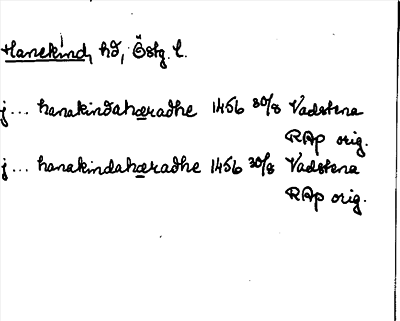 Hanekind, hd, Östg. l.
j... hanakindahæradhe 1456 30/8 Vadstena
RAp orig.
j... hanakindahæradhe 1456 30/8 Vadstena
RAp orig.